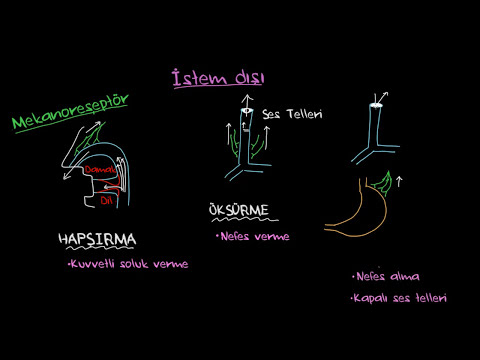 İstem dışı
Mekanoreseptör
Ses Telleri
Damak
Dil
HAPŞIRMA
• Kuvvetli soluk verme
ÖKSÜRME
• Nefes verme
• Nefes alma
• Kapalı ses telleri